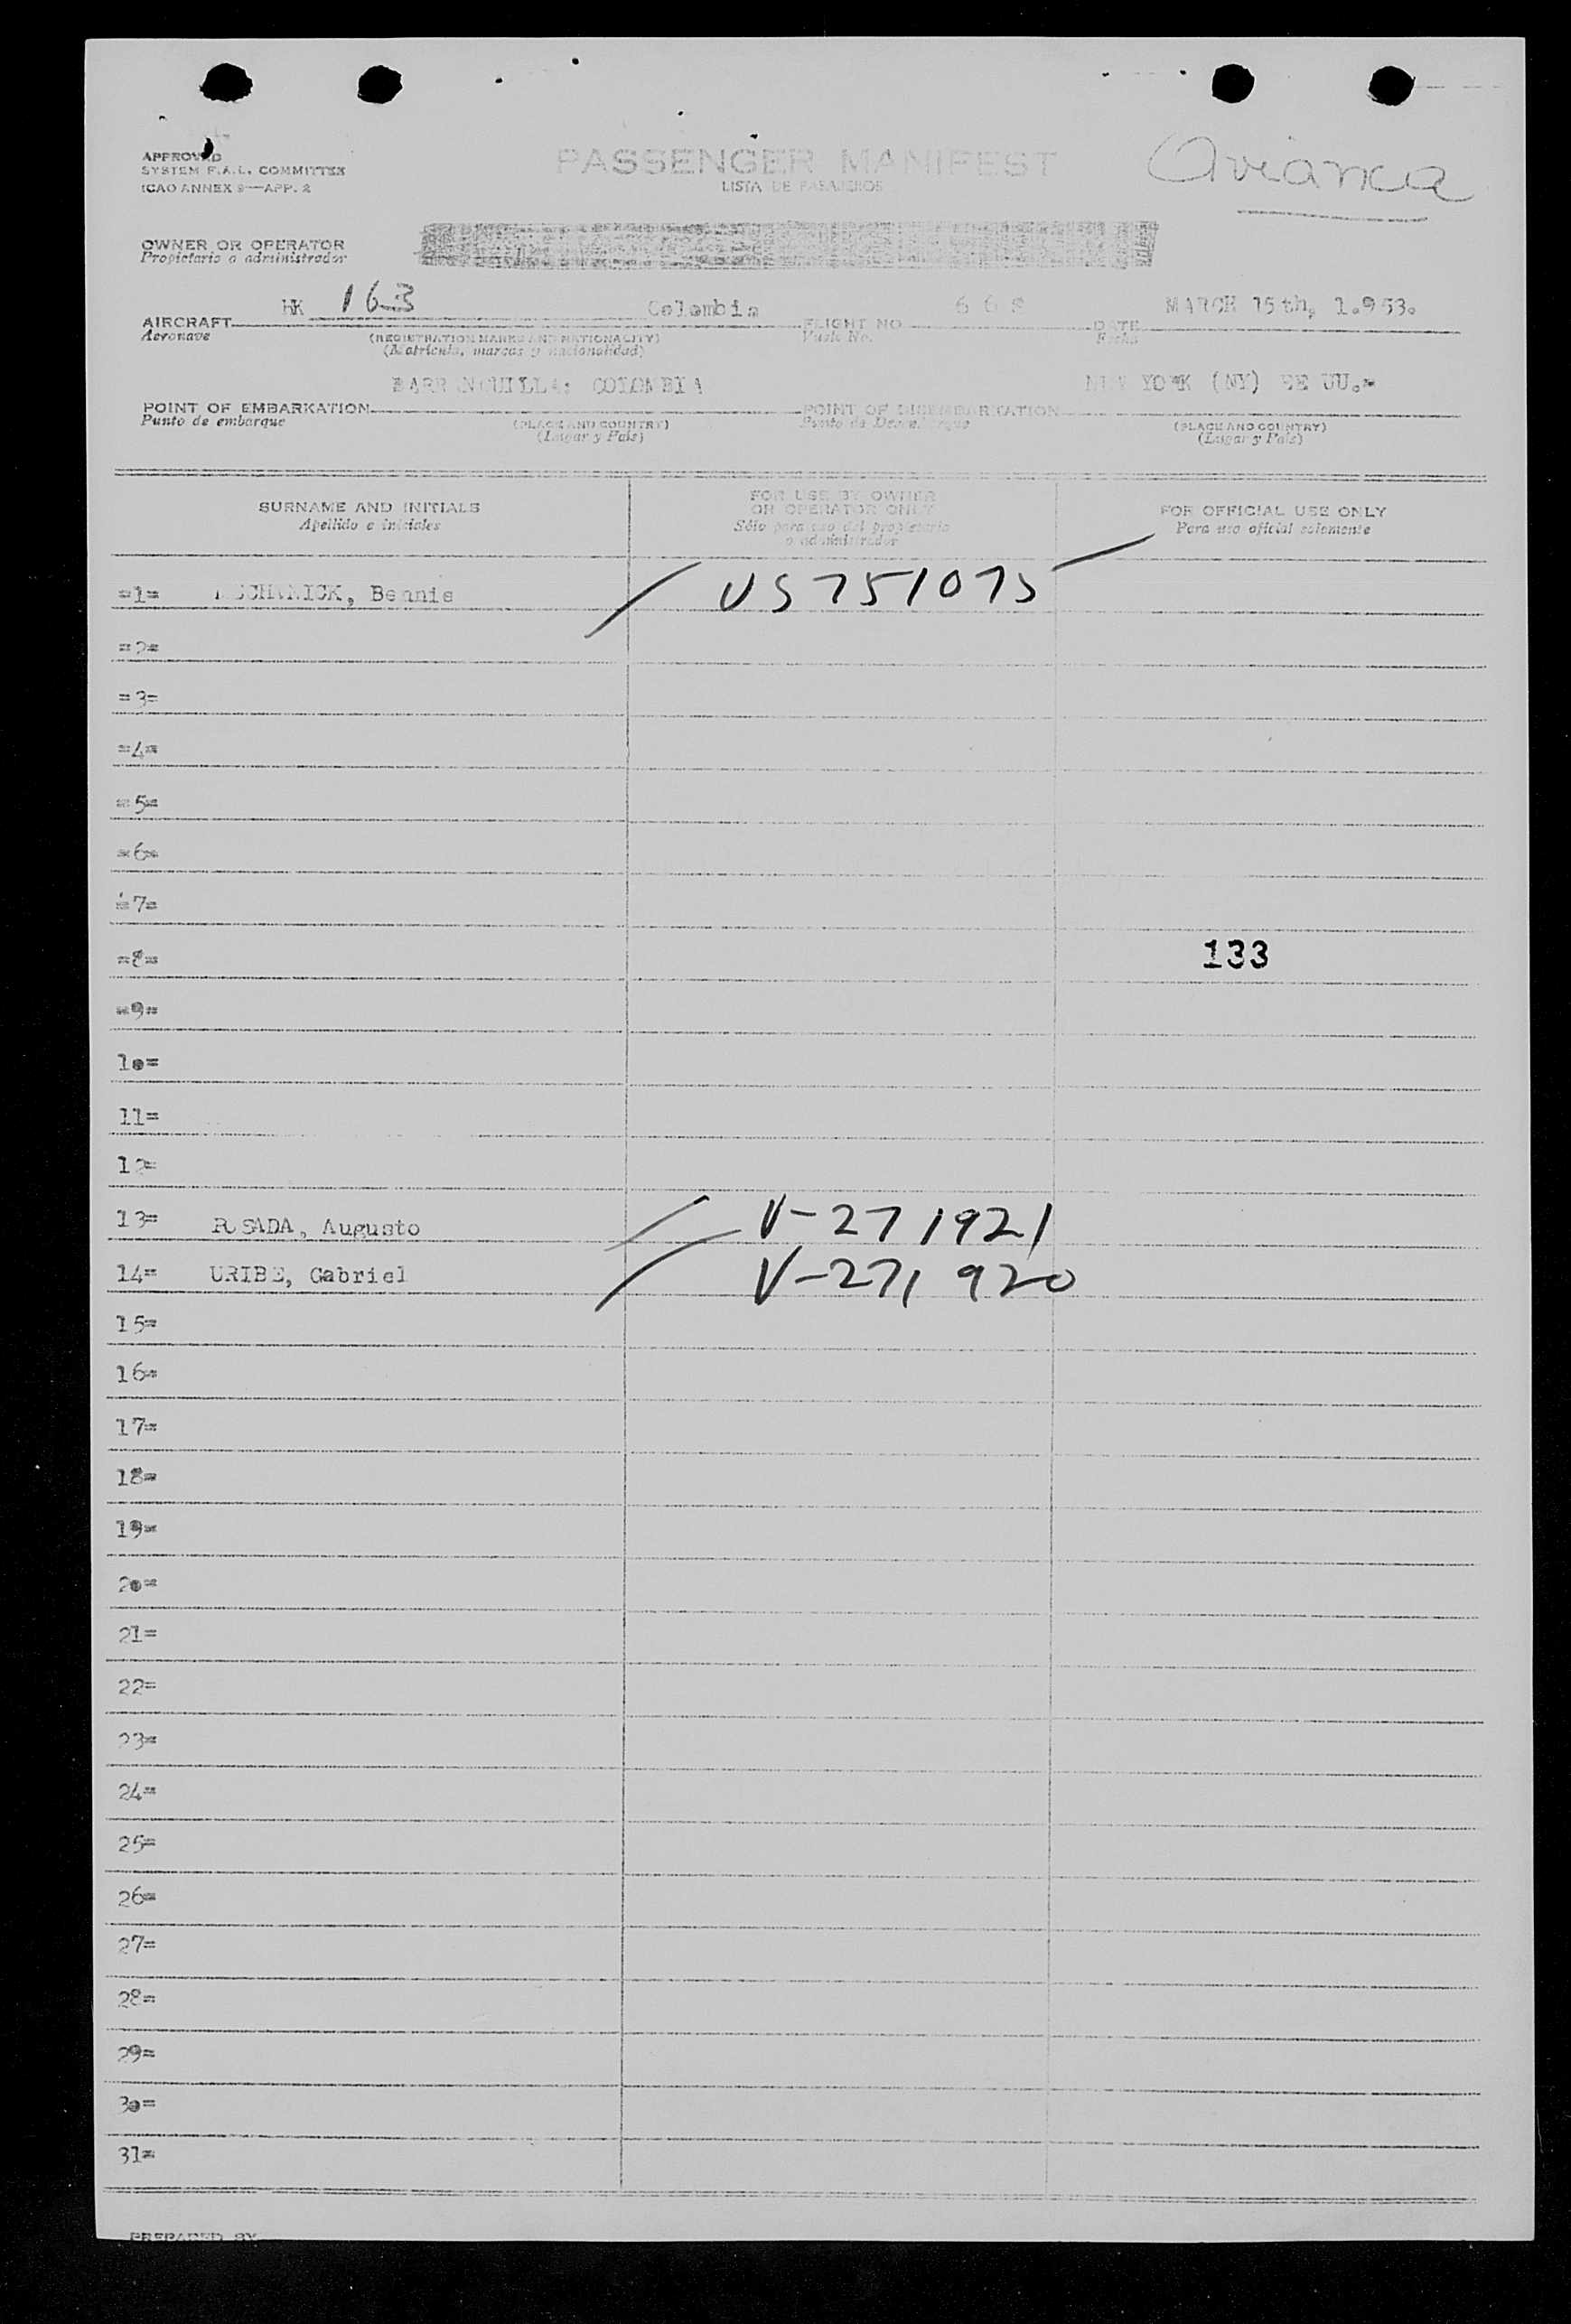 APPROVED
SYSTEM F.A.L. COMMITTEE
ICAO ANNEX 9—APP. 2
PASSENGER MANIFEST
LISTA DE PASAJEROS
Avianca
OWNER OR OPERATOR
Propietario o administrador
AIRCRAFT HK 163 Colombia FLIGHT NO 668 DATE MARCH 15th, 1.953.
Aeronave (REGISTRATION MARKS AND NATIONALITY) Vuelo No. Fecha
(Matrícula, marcas y nacionalidad)
POINT OF EMBARKATION BARRANQUILLA: COLOMBIA POINT OF DISEMBARKATION NEW YORK (NY) EE UU.=
Punto de embarque (PLACE AND COUNTRY) Punto de Desembarque (PLACE AND COUNTRY)
(Lugar y País) (Lugar y País)
SURNAME AND INITIALS
Apellido e iniciales
FOR USE BY OWNER
OR OPERATOR ONLY
Sólo para uso del propietario
o administrador
FOR OFFICIAL USE ONLY
Para uso oficial solamente
=1= Bennie US 751075
=2=
=3=
=4=
=5=
=6=
=7=
=8= 133
=9=
10=
11=
12=
13= Augusto V-271921
14= URIBE, Gabriel V-271920
15=
16=
17=
18=
19=
20=
21=
22=
23=
24=
25=
26=
27=
28=
29=
30=
31=
PREPARED BY